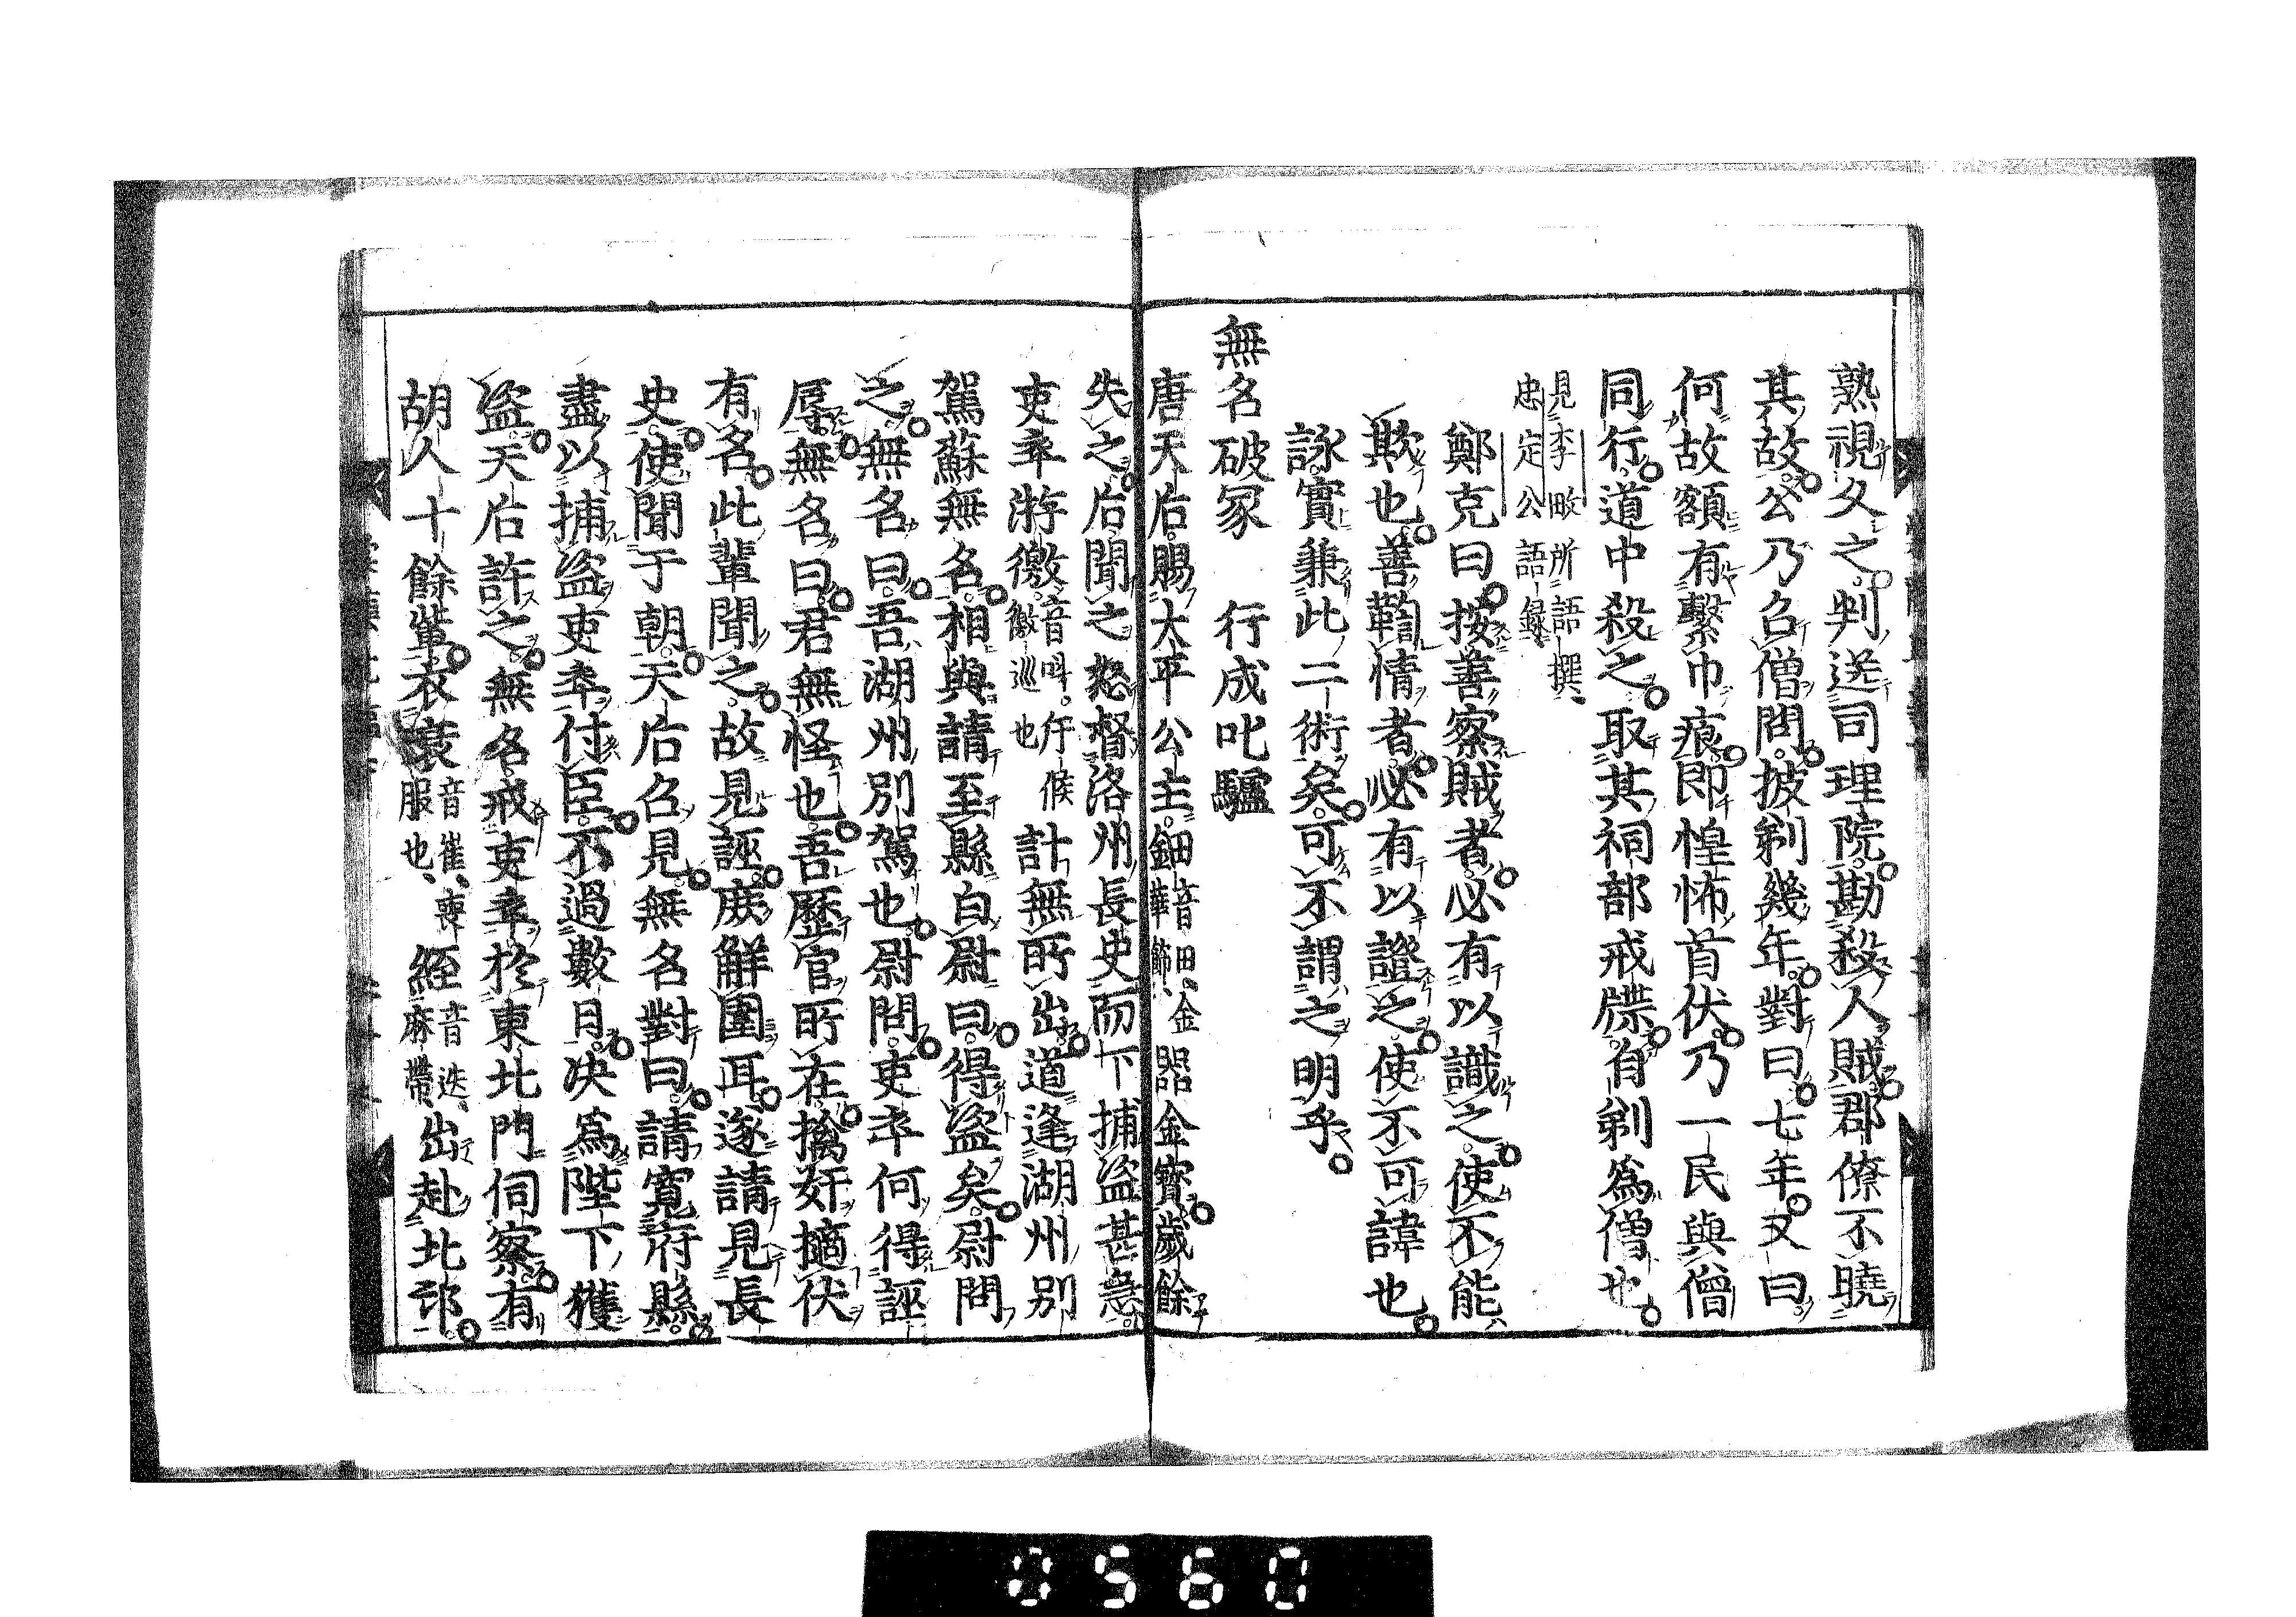 熟視久之判送司理院勘殺人賊郡僚不曉
其故公乃召僧問披剃幾年對曰七年又曰
何故額有繫巾痕即惶怖首伏乃一民與僧
同行道中殺之取其祠部戒牒自剃為僧也
見李畋所語撰
忠定公語録
鄭克曰按善察賊者必有以識之使不能
欺也善鞫情者必有以證之使不可諱也
詠實兼此二術矣可不謂之明乎
無名破冢 行成叱驢
唐天后賜太平公主鈿音田金華飾器金寶歲餘
失之后聞之怒督洛州長史而下捕盜甚急
吏卒游徼音叫仵候徼巡也計無所出道逢湖州別
駕蘇無名相與請至縣白尉曰得盜矣尉問
之無名曰吾湖州別駕也尉問吏卒何得誣
辱無名曰君無怪也吾歷官所在擒奸擿伏
有名此輩聞之故見誣庶解圍耳遂請見長
史使聞于朝天后召見無名對曰請寬府縣
盡以捕盜吏卒付臣不過數月决為陛下獲
盜天后許之無名戒吏卒於東北門伺察有
胡人十餘輩衣衰音崔喪服也絰音迭麻帶出赴北邙
0560